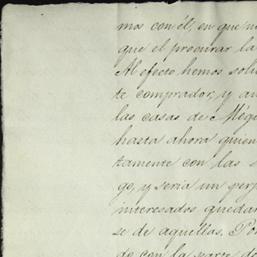 mos con él, en que
que el procurar la
Al efecto hemos
te comprador, y
las casas de
hasta ahora quien
tamente con las
go, y seria un
interesados
se de aquellas.
do con la parte